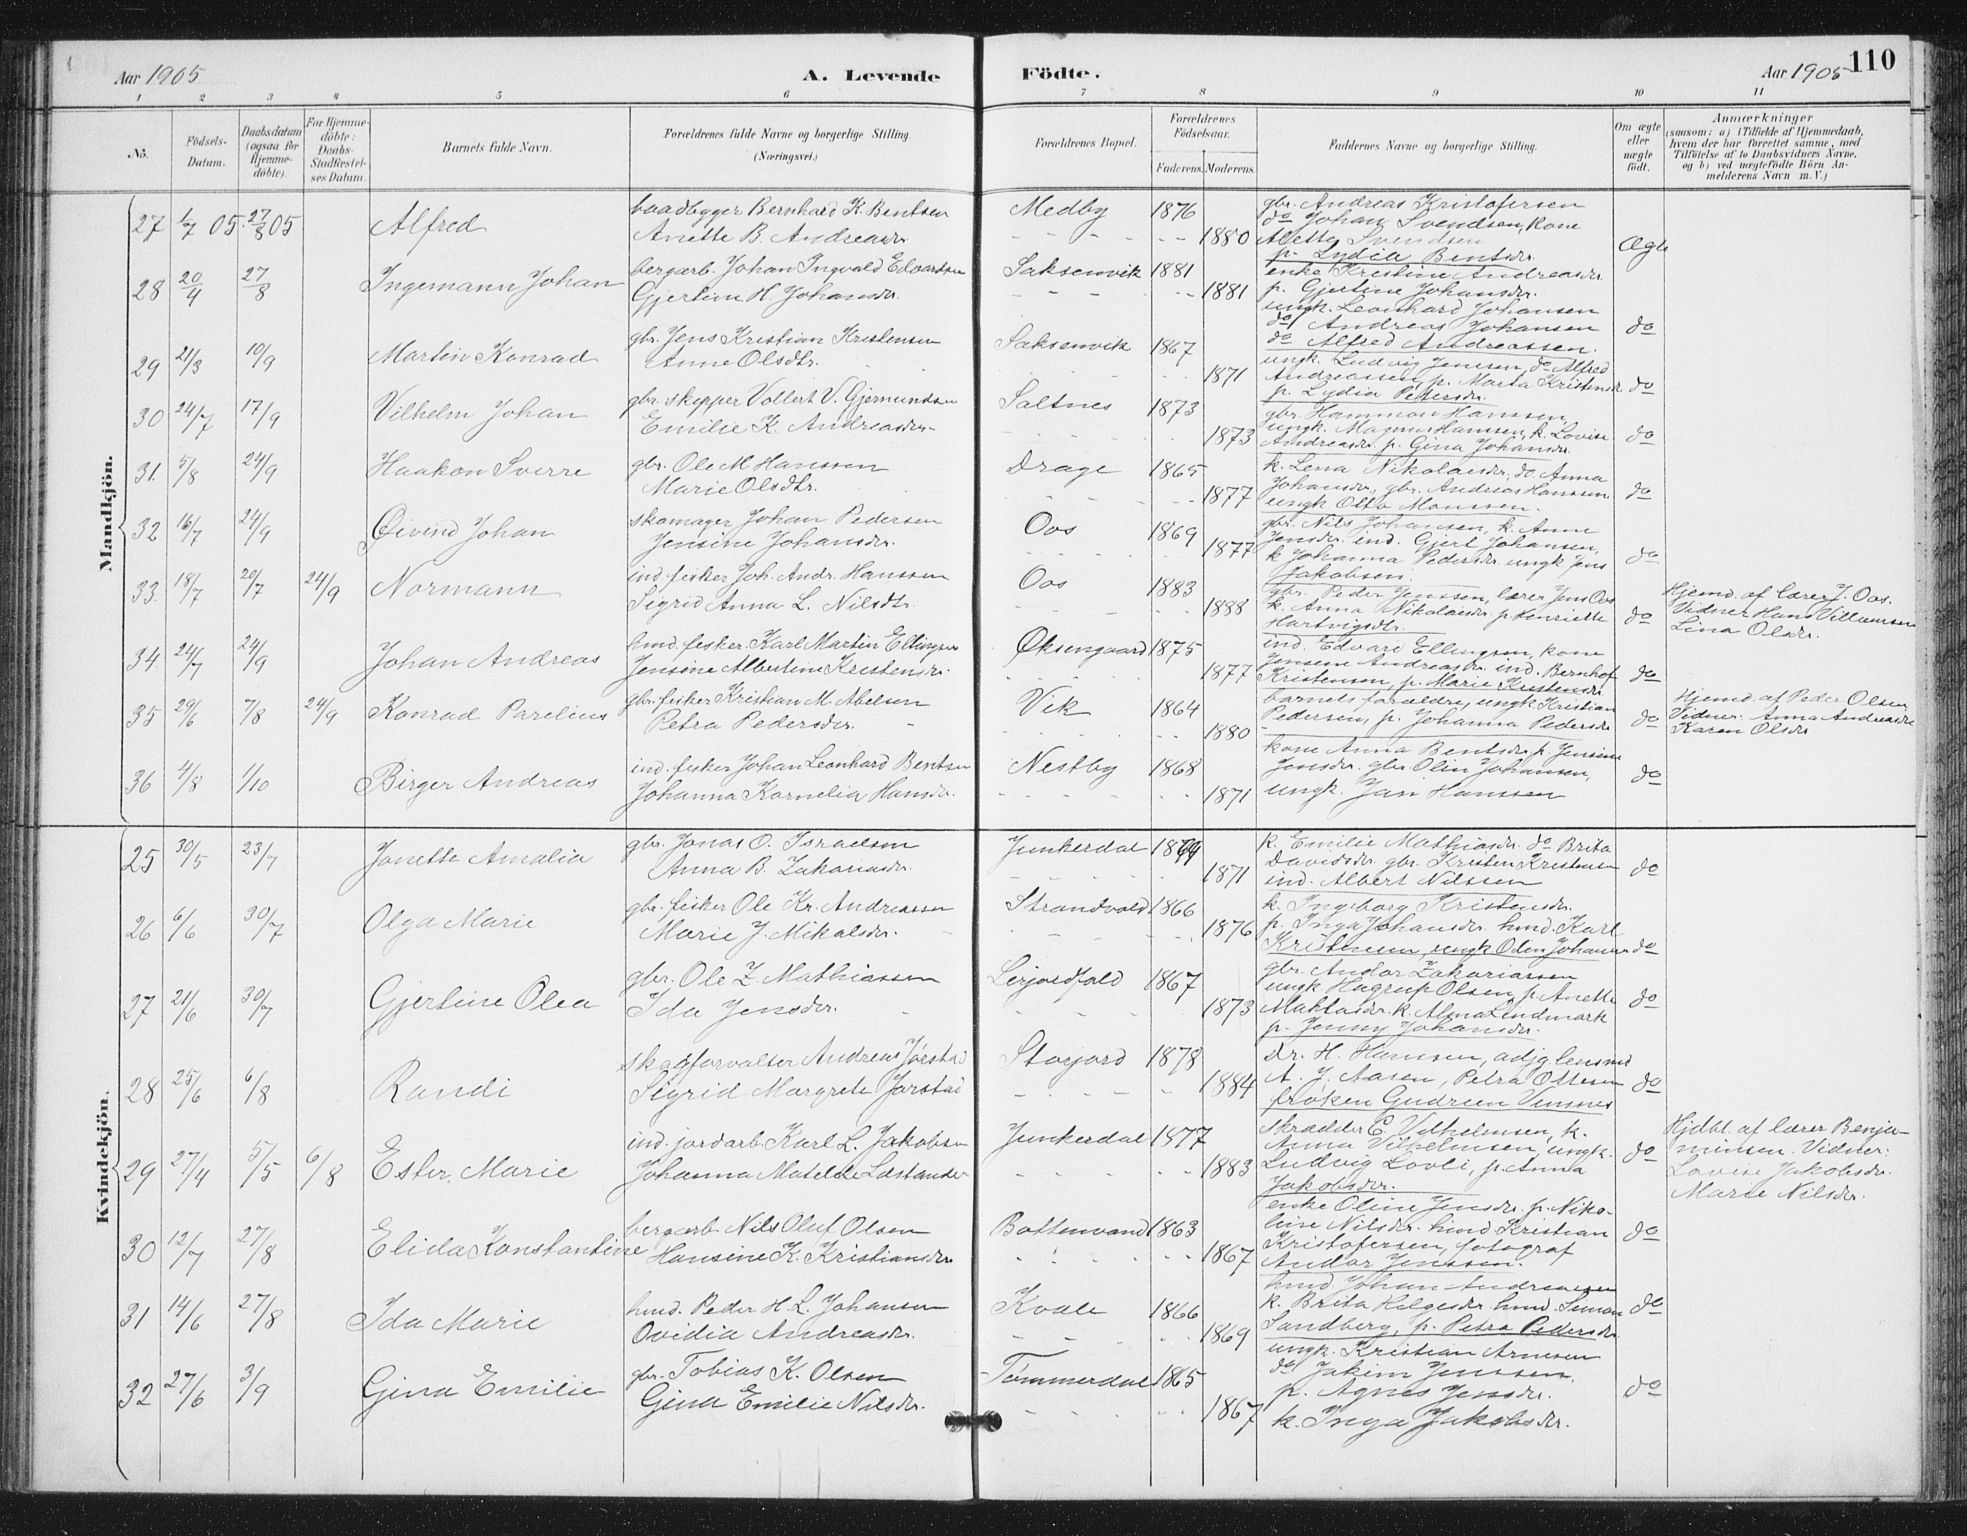 Aar 1905
A. Levende
Födte.
Aar 1905
110
1 2 3 4 5 6 7 8 9 10 11
No.
Födsels-Datum.
Daabsdatum (ogsaa for Hjemme-döbte).
For Hjemme-döbte: Daabs-Stadfæstel-ses Datum.
Barnets fulde Navn.
Forældrenes fulde Navne og borgerlige Stilling.
(Næringsvei.)
Forældrenes Bopæl.
Forældrenes Födselsaar.
Faderens. Moderens.
Faddernes Navne og borgerlige Stilling.
Om ægte eller uægte födt.
Anmærkninger
(saasom: a) i Tilfælde af Hjemmedaab,
hvem der har forrettet samme, med
Tilföielse af to Daabsvidners Navne,
og b) ved uægtefödte Börn An-
melderens Navn m. V.)
Mandkjön.
27 1/7 05. 27/8 05 Alfred
baadbygger Bernhard K. Bentsen
Anette B. Andreasdr.
Medby 1876
1880
gbr. Andreas Kristofersen
do Johan Svendsen, kone
Alette Svendsen
p. Lydia Bentsdr.
Ægte
28 20/4 27/8 Ingemann Johan
bergarb. Johan Ingvald Edvardsen
Gjertine H. Johansdr.
Saksenvik 1881
1881
enke Kristine Andreasdr.
p. Gjertine Johansdr.
ungk. Leonhard Johansen
do Andreas Johansen
do Alfred Andreassen.
do
29 21/3 10/9 Martin Konrad
gbr. Jens Kristian Kristensen
Anne Olsdtr.
Saksenvik 1867
1871
ungk. Ludvig Jensen, do Alfred
Andreassen, p. Marta Kristensdr.
p. Lydia Petersdr.
do
30 24/7 17/9 Vilhelm Johan
gbr. skipper Vollert V. Gjemundsen
Emilie K. Andreasdr.
Saltnes 1873
1873
gbr. Hammon Hanssen,
ungk. Magnus Hanssen, k. Lovise
Andreasdr. p. Gina Johansdr.
do
31. 5/8 24/9 Haakon Sverre
gbr. Ole M. Hanssen
Marie Olsdtr.
Drage 1865
1877
k. Lena Nikolaisdr, do Anna
Johansdr, gbr. Andreas Hanssen
ungk Otto Monssen.
do
32 16/7 24/9 Øivind Johan
skomager Johan Pedersen
Jensine Johansdr.
Oos 1869
1877
gbr. Nils Johansen, k. Anne
Jensdr. ind. Gjert Johansen,
k Johanna Pedersdr. ungk Jens
Jakobsen.
do
33. 18/7 20/7 24/9 Normann
ind. fisker Joh. Andr. Hanssen
Sigrid Anna L. Nilsdtr.
Oos 1883
1888
gbr. Peder Jenssen, lærer Jens Oos
k. Anna Nikolaisdr p. Henriette
Hartvigsdtr.
do
Hjemd. af lærer J. Oos.
Vidner Hans Villumsen
Lina Olsdr.
34. 24/7 24/9 Johan Andreas
hmd. fisker Karl Martin Ellingsen
Jensine Albertine Kristensdr.
Øksengaard 1875
1877
ind. Edvard Ellingsen, kone
Jensine Andreasdr. ind. Bernhof
Kristensen, p. Marie Kristensdr
do
35 29/6 7/8 24/9 Konrad Parelius
gbr. fisker Kristian M. Abelsen
Petra Pedersdr.
Vik 1864
1880
barnets forældre, ungk Kristian
Pedersen, p. Johanna Pedersdr
do
Hjemd. af Peder Olsen
Vidner: Anna Andreasdr
Karen Olsdr
36 4/8 1/10 Birger Andreas
ind. fisker Johan Leonhard Bentsen
Johanna Kornelia Hansdr.
Nestby 1868
1871
kone Anna Bentsdr, p. Jensine
Jensdr. gbr. Olin Johansen,
ungk. Jan Hanssen
do
Kvindekjön.
25 30/5 23/7 Jonette Amalia
gbr. Jonas O. Israelsen
Anna B. Zakariasdr.
Junkerdal
1871
k. Emilie Mathiasdr. do Brita
Davidsdr. gbr. Kristen Kristensen
ind. Albert Nilssen
do
26 6/6 30/7 Olga Marie
gbr. fisker Ole Kr. Andreassen
Marie J. Mikalsdr.
Strandvold 1866
1876
k. Ingeborg Kristensdr.
p. Inga Johansdr. hmd. Karl
Kristensen, ungk Oden Johansen
do
27 21/6 30/7 Gjertine Olea
gbr. Ole Z Mathiassen
Ida Jensdr.
Leijordfald 1867
1873
gbr. Andor Zakariassen
ungk Hagrup Olsen, p. Anette
k. Alma Lindmark
p. Jenny Johansdr.
do
28 25/6 6/8 Randi
skogforvalter Andreas Jørstad
Sigrid Margrete Jørstad
Storjord 1878
1884
dr. H. Hansen, adj. lensmd
A. J. Aasen, Petra Ottesen
frøken Gudrun Vinsnes
do
29 27/4 5/5 6/8 Ester Marie
ind. jordarb. Karl L. Jakobsen
Johanna Matilde Læstander
Junkerdal 1877
1883
skrædder C. Vilhelmsen, k.
Anna Vilhelmsen, ungk.
Ludvig Lovli, p. Anna
Jakobsdr.
do
Hjdbt. af lærer Benja-
minsen. Vidner:
Lovise Jakobsdr.
Marie Nilsdr.
30 12/7 27/8 Elida Konstantine
bergarb. Nils Oluf Olsen
Hansine K. Kristiansdr.
Bottenvand 1863
1867
enke Oline Jensdr. p. Niko-
line Nilsdr. hmd Kristian
Kristofersen, fotograf
Andor Jenssen.
do
31 14/6 27/8 Ida Marie
hmd. Peder H. L. Johansen
Ovidia Andreasdr.
Kvale 1866
1869
hmd. Johan Andreassen
k. Brita Helgesdr. hmd. Simon
Sandberg, p. Petra Pedersdr
do
32 27/6 3/9 Gina Emilie
gbr. Tobias K. Olsen
Gina Emilie Nilsdr.
Tømmerdal 1865
1867
ungk. Kristian Arnesen
do Jakim Jenssen.
p. Agnes Jensdr.
k. Inga Jakobsdr.
do